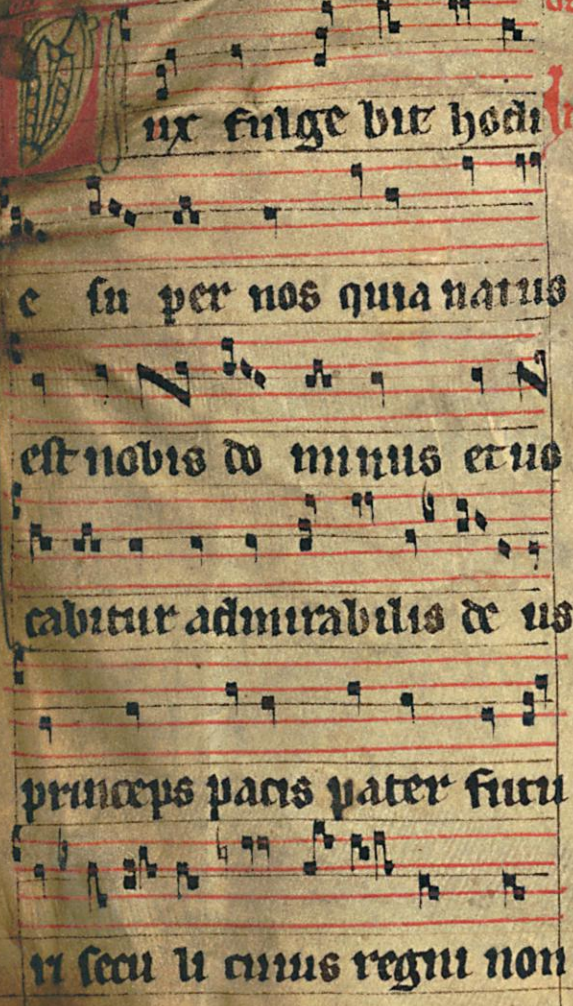 Lux fulge bit hodi
e su per nos quia natus
est nobis do minus et uo
cabitur admirabilis de us
princeps pacis pater futu
ri secu li cuius regni non